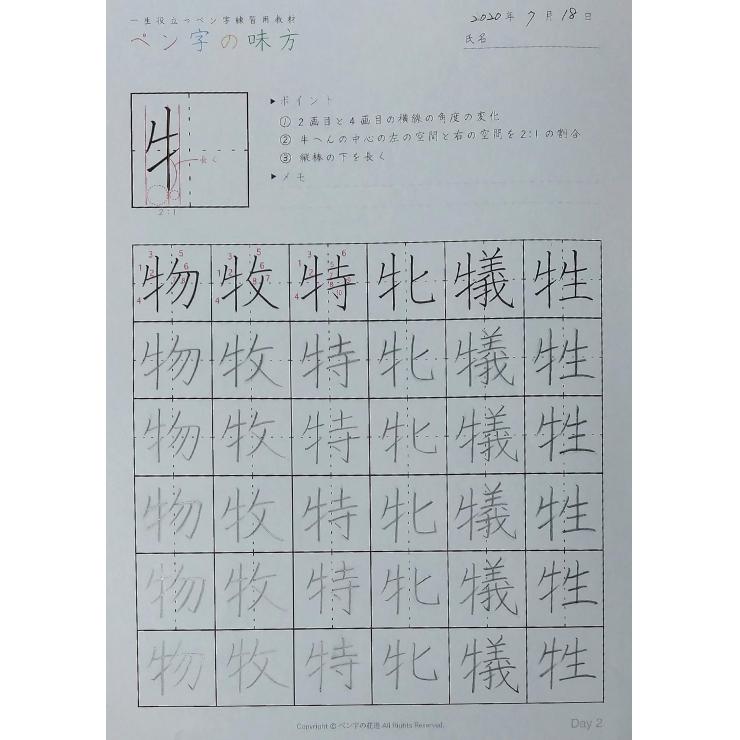 一生役立つペン字練習用教材
ペン字の味方
2020年 7月 18日
氏名
牜
長く
2:1
▶ポイント
① 2画目と4画目の横線の角度の変化
② 牛へんの中心の左の空間と右の空間を2:1の割合
③ 縦棒の下を長く
▶メモ
物 牧 特 牝 犠 牲
物 牧 特 牝 犠 牲
物 牧 特 牝 犠 牲
物 牧 特 牝 犠 牲
物 牧 特 牝 犠 牲
物 牧 特 牝 犠 牲
Copyright © ペン字の花道 All Rights Reserved.
Day 2